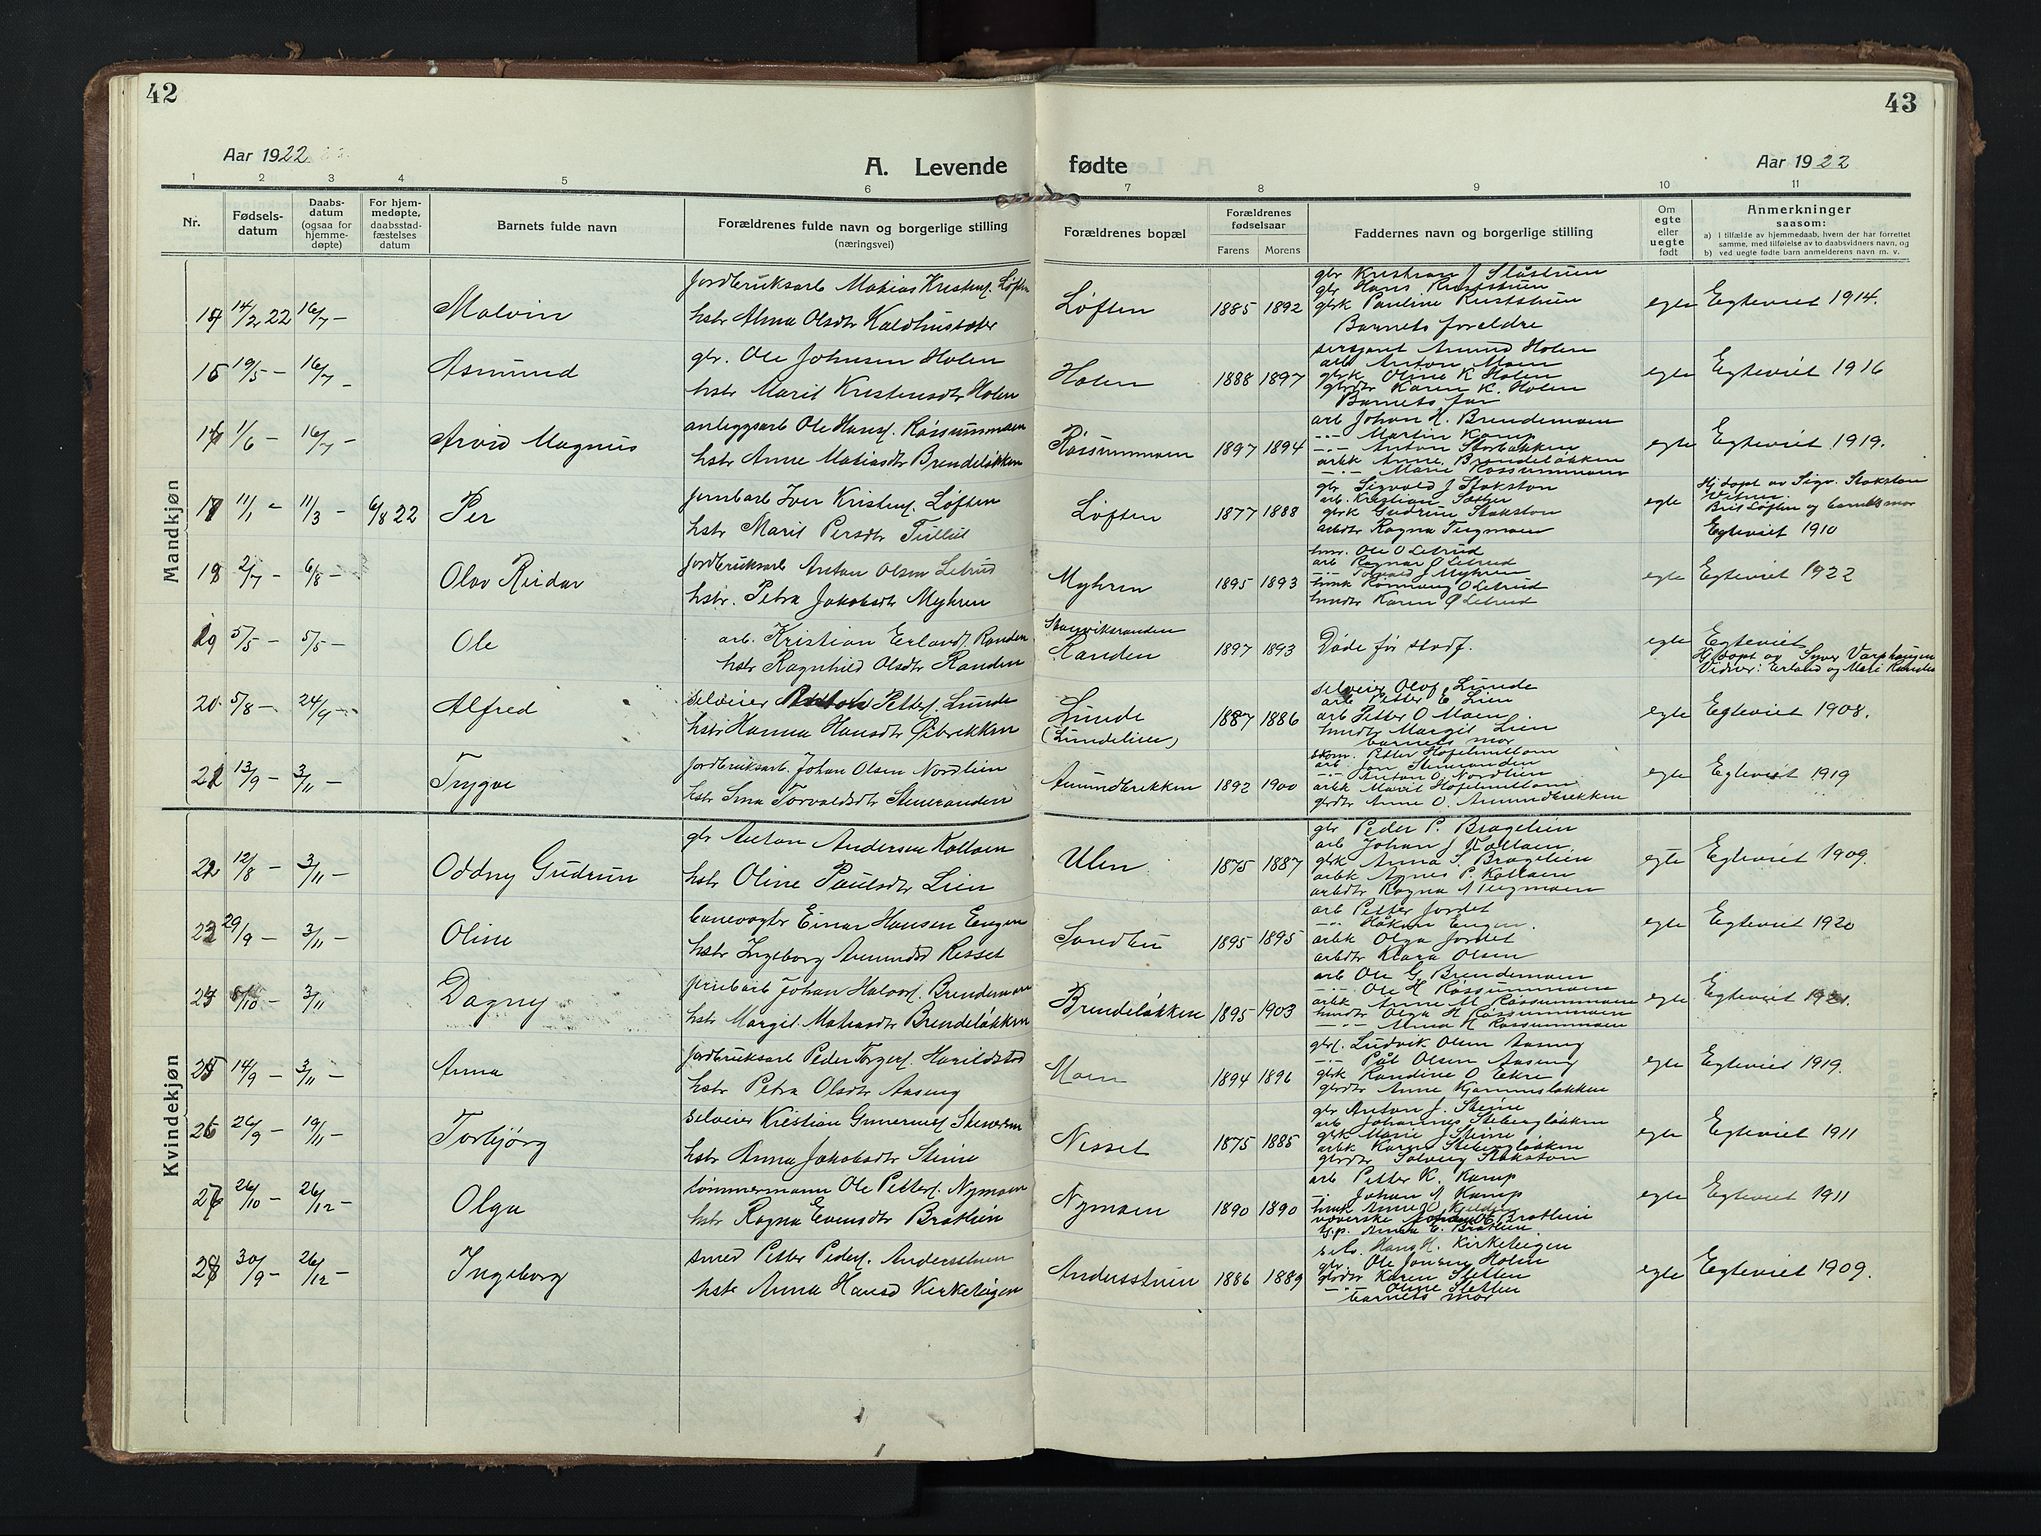 42
43
Aar 1922
A. Levende fødte
Aar 1922
1 2 3 4 5 6 7 8 9 10 11
Nr.
Fødsels-
datum
Daabs-
datum
(ogsaa for
hjemme-
døpte)
For hjem-
medøpte,
daabsstad-
fæstelses
datum
Barnets fulde navn
Forældrenes fulde navn og borgerlige stilling
(næringsvei)
Forældrenes bopæl
Forældrenes
fødselsaar
Farens Morens
Faddernes navn og borgerlige stilling
Om
egte
eller
uegte
født
Anmerkninger
saasom:
a) I tilfælde av hjemmedaab, hvem der har forrettet
samme, med tilføielse av to daabsvidners navn, og
b) ved uegte fødte barn anmelderens navn m. v.
Mandkjøn
14/2 22 16/7 – Malvin
jordbruksarb Matias Kristens. Løften
hstr Alma Olsdtr
Løften 1885 1892
gbr Kristian J
gbr Hans
gbrk Pauline
Barnets foreldre
egte Egteviet 1914.
15 19/5 – 16/7 – Asmund
gbr. Ole Johnsen Holen
hstr Marit Kristensdtr Holen
Holen 1888 1897
sersjant Amund Holen
arb Anton Moen
gbrk Oline K Holen
gbrdtr Karen K. Holen
Barnets far
egte Egteviet 1916
16 1/6 – 16/7 – Arvid Magnus
anleggsarb Ole Hans. Røssummoen
hstr Anne Matiasdtr Brendeløkken
Røssummoen 1897 1894
arb Johan H. Brendemoen
–"– Martin Kamp
–"– Anton Storbakken
arbk Anne Brendeløkken
–"– Marie Røssummoen
egte Egteviet 1919.
17 11/1 – 11/3 – 6/8 22 Per
jernbarb Iver Kristens. Løften
hstr Marit Persdtr Tullut
Løften 1877 1888
gbr Sigvald J Stokston
arb. Kristian Sæter
gbrk Gudrun Stokston
arbdtr Ragna Tegmoen
egte
Hj.døpt av Sigv. Stokston
Vitner.
Brit Løften og barnets mor
Egteviet 1910
18 2/7 – 6/8 – Olav Reidar
jordbruksarb Anton Olsen Letrud
hstr. Petra Jakobsdtr Myhren
Myhren 1895 1893
hm. Ole O Letrud
arb Ragnar O Letrud
–"– Torvald J Myhren
O Letrud
hmdtr Karen O Letrud
egte Egteviet 1922
19 5/5 – 5/5 – Ole
arb. Kristian Erlands. Randen
hstr Ragnhild Olsdtr Randen
Randen 1897 1893
Døde før stadf.
egte Egteviet
Hj.døpt av Syver Varphaugen
Vidner: Erland og Mari Randen
20 5/8 – 24/9 – Alfred
selveier Anton Petters. Lunde
hstr Hanna Hansdtr Øibrekken
Lunde
(Lundelien)
1887 1886
selveier Olof Lunde
arb Petter E Lien
arb Petter O Moen
hmdtr Margit Lien
barnets mor
egte Egteviet 1908.
21 13/9 – 3/11 – Trygve
jordbruksarb. Johan Olsen Nordlien
hstr Torvaldsdtr Steneranden
Amundbrekken 1892 1900
arb Jon Steneranden
–"– Anton O. Nordlien
arbk Marit
gbrdtr Anne O. Amundbrekken
egte Egteviet 1919
Kvindekjøn
22 12/8 – 3/11 – Oddny Gudrun
gbr Anton Andersen Kolloen
hstr Oline Paulsdtr Lien
Ulen 1875 1887
gbr Peder P. Bragelien
arb Johan J Kolloen
gbrk Anna S. Bragelien
arbk Agnes P. Kolloen
arbdtr Ragna A Tegmoen
egte Egteviet 1909.
23 29/9 – 3/11 – Oline
banevogtr Einar Hansen Engen
hstr Ingeborg Amundsd Risset
Sandbu 1895 1895
arb Petter Jordet
–"– Håkon Engen.
arbk Olga Jordet
arbdtr Klara Olsen
egte Egteviet 1920
24 5/10 – 3/11 Dagny
jernbarb Johan Halvors. Brendemoen
hstr Margit Matiasdtr Brendeløkken
Brendeløkken 1895 1903
arb Ole G. Brendemoen
–"– Ole H Røssummoen
arbk Anne M Røssummoen
hmdtr Olga H Røssummoen
–"– Anna H Røssummoen
egte Egteviet 1921.
25 14/9 – 3/11 – Anna
jordbruksarb Peder Torgers. Harildstad
hstr Petra Olsdtr Aaseng
Moen 1894 1896
gbrs. Ludvik Olsen Aaseng
–"– Pål Olsen Aaseng
gbrk Randine O Ekre
gbrdtr Anne Kjømmsløkken
egte Egteviet 1919.
26 26/9 – 19/11 – Torbjørg
selveier Kristian Gunerius Stenersen
hstr Anna Jakobsdtr Steine
Nisset 1875 1885
gbr Anton J. Steine
arb Johannes Stebergløkken
gbrk Marie J Steine
arbk Karen Stebergløkken
gbrdtr Solveig Stokston
egte Egteviet 1911
27 26/10 – 26/12 – Olga
tømmermann Ole Petters. Nymoen
hstr Ragna Evensdtr Bratlien
Nymoen 1890 1890
arb Petter K. Kamp
–"– Johan A Kamp
hmk Anne O Kjelden
væverske Bratlien
t.p. Anna E. Bratlien
egte Egteviet 1911
28 30/9 – 26/12 – Ingeborg
smed Petter Peders. Andersstuen
hstr Anna Hansd Kirketeigen
Andersstuen 1886 1889
selv. Hans H. Kirketeigen
gbr. Ole Jonsen Holen
gbrdtr Karen Sletten
–"– Oline Sletten
barnets mor
egte Egteviet 1909.